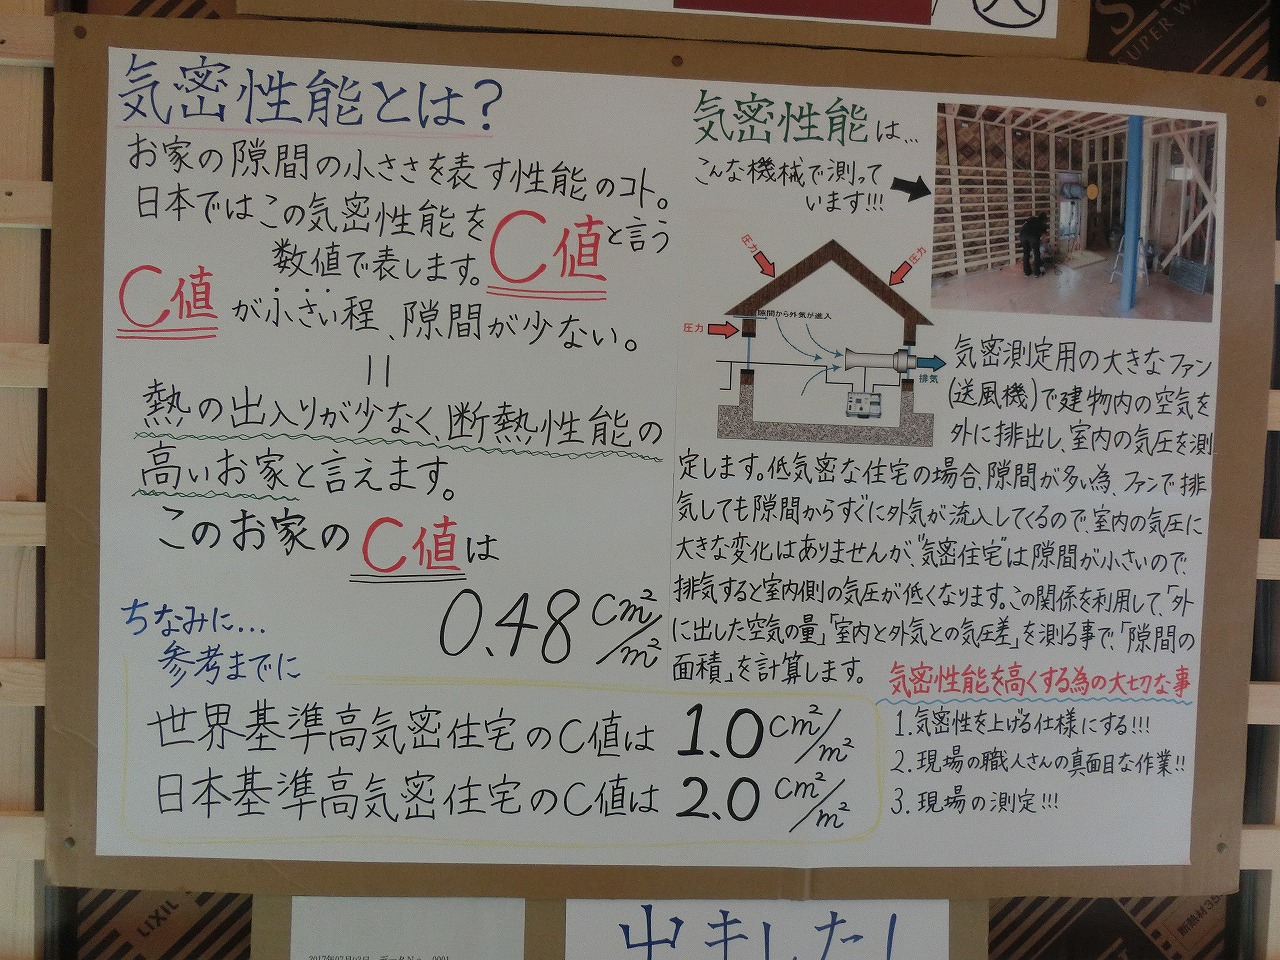 気密性能とは?
お家の隙間の小ささを表す性能のコト。
日本ではこの気密性能をC値と言う
数値で表します。
C値が小さい程、隙間が少ない。
=
熱の出入りが少なく、断熱性能の
高いお家と言えます。
このお家のC値は
0.48cm²/m²
ちなみに...
参考までに
世界基準高気密住宅のC値は1.0cm²/m²
日本基準高気密住宅のC値は2.0cm²/m²
気密性能は...
こんな機械で測って
います!!!
圧力
圧力
圧力
隙間から外気が進入
排気
気密測定用の大きなファン
(送風機)で建物内の空気を
外に排出し、室内の気圧を測
定します。低気密な住宅の場合、隙間が多い為、ファンで排
気しても隙間からすぐに外気が流入してくるので、室内の気圧に
大きな変化はありませんが、"気密住宅"は隙間が小さいので、
排気すると室内側の気圧が低くなります。この関係を利用して、「外
に出した空気の量」「室内と外気との気圧差」を測る事で、「隙間の
面積」を計算します。
気密性能を高くする為の大切な事
1.気密性を上げる仕様にする!!!
2.現場の職人さんの真面目な作業!!
3.現場の測定!!!
SUPER W
LIXIL
断熱材35
出ました!